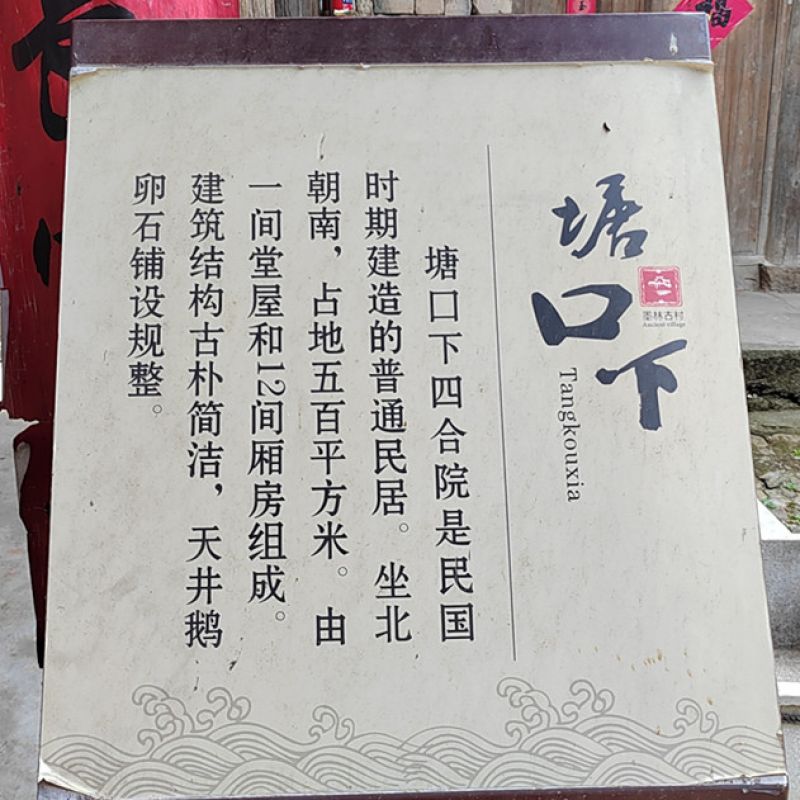 塘口下
Tangkouxia
墨林古村
Ancient village
塘口下四合院是民国
时期建造的普通民居。坐北
朝南，占地五百平方米。由
一间堂屋和12间厢房组成。
建筑结构古朴简洁，天井鹅
卵石铺设规整。
福